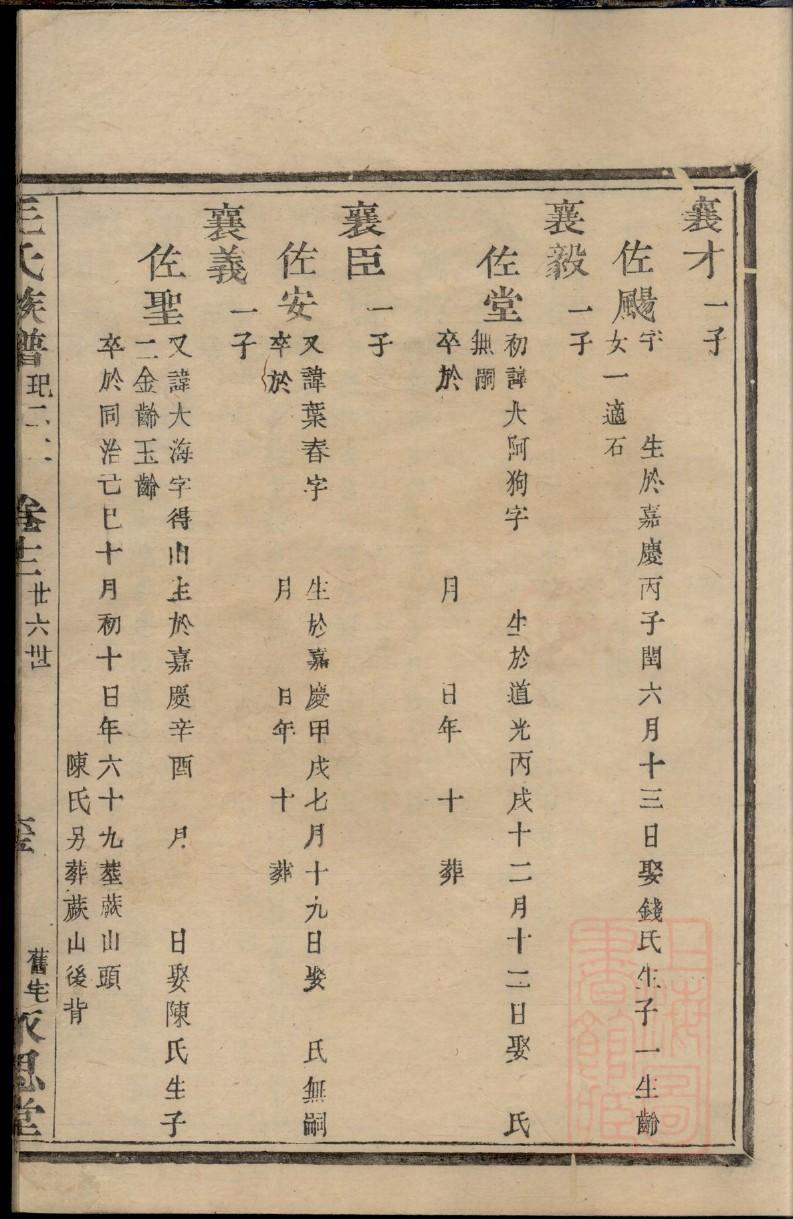 襄才一子
佐颺字 生於嘉慶丙子閏六月十三日娶錢氏生子一生齡
女一適石
襄毅一子
佐堂初諱大阿狗字 生於道光丙戌十二月十二日娶 氏
無嗣
卒於 月 日年 十 葬
襄臣一子
佐安又諱葉春字 生於嘉慶甲戌七月十九日娶 氏無嗣
卒於 月 日年 十 葬
襄義一子
佐聖又諱大海字得山生於嘉慶辛酉 月 日娶陳氏生子
二金齡玉齡
卒於同治己巳十月初十日年六十九葬蕨山頭
陳氏另葬蕨山後背
王氏族譜 卷 廿六世 舊宅 思堂
上海圖書館藏